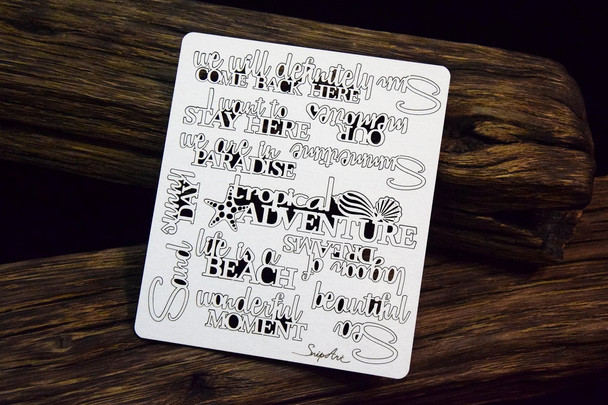 we will definitely
COME BACK HERE
Sun
I want to
STAY HERE
OUR
memories
we are in
PARADISE
Summertime
sunny
DAY
tropical
ADVENTURE
lagoon of
DREAMS
life is a
BEACH
Sand
wonderful
MOMENT
beautiful
Sea
SnipArt